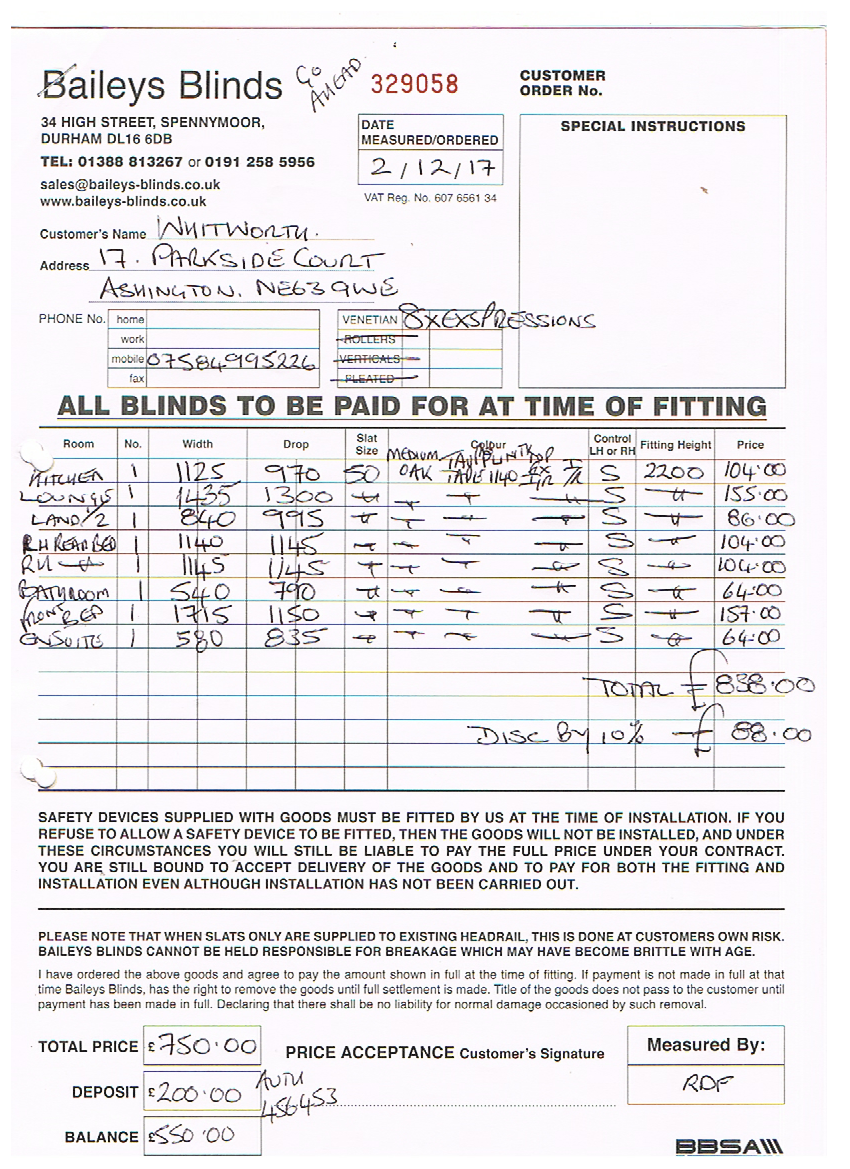 Baileys Blinds
GO AHEAD
329058
CUSTOMER
ORDER No.
34 HIGH STREET, SPENNYMOOR,
DURHAM DL16 6DB
TEL: 01388 813267 or 0191 258 5956
sales@baileys-blinds.co.uk
www.baileys-blinds.co.uk
DATE
MEASURED/ORDERED
2/12/17
VAT Reg. No. 607 6561 34
SPECIAL INSTRUCTIONS
Customer's Name WHITWORTH.
Address 17. PARKSIDE COURT
ASHINGTON. NE63 9WE
PHONE No. home
work
mobile 07584995226
fax
VENETIAN 8 X EXSPRESSIONS
ROLLERS
VERTICALS
PLEATED
ALL BLINDS TO BE PAID FOR AT TIME OF FITTING
Room No. Width Drop Slat Size Colour Control LH or RH Fitting Height Price
KITCHEN 1 1125 970 50 MEDIUM OAK TAPE 1140 S 2200 104.00
LOUNGE 1 1435 1300 S 155.00
LAND 1/2 1 840 995 S 86.00
RH REAR BED 1 1140 1145 S 104.00
RH 1 1145 1145 S 104.00
BATHROOM 1 540 790 S 64.00
FRONT BED 1 1715 1150 S 157.00
ENSUITE 1 580 835 S 64.00
TOTAL £838.00
DISC BY 10% £88.00
SAFETY DEVICES SUPPLIED WITH GOODS MUST BE FITTED BY US AT THE TIME OF INSTALLATION. IF YOU
REFUSE TO ALLOW A SAFETY DEVICE TO BE FITTED, THEN THE GOODS WILL NOT BE INSTALLED, AND UNDER
THESE CIRCUMSTANCES YOU WILL STILL BE LIABLE TO PAY THE FULL PRICE UNDER YOUR CONTRACT.
YOU ARE STILL BOUND TO ACCEPT DELIVERY OF THE GOODS AND TO PAY FOR BOTH THE FITTING AND
INSTALLATION EVEN ALTHOUGH INSTALLATION HAS NOT BEEN CARRIED OUT.
PLEASE NOTE THAT WHEN SLATS ONLY ARE SUPPLIED TO EXISTING HEADRAIL, THIS IS DONE AT CUSTOMERS OWN RISK.
BAILEYS BLINDS CANNOT BE HELD RESPONSIBLE FOR BREAKAGE WHICH MAY HAVE BECOME BRITTLE WITH AGE.
I have ordered the above goods and agree to pay the amount shown in full at the time of fitting. If payment is not made in full at that
time Baileys Blinds, has the right to remove the goods until full settlement is made. Title of the goods does not pass to the customer until
payment has been made in full. Declaring that there shall be no liability for normal damage occasioned by such removal.
TOTAL PRICE £750.00
PRICE ACCEPTANCE Customer's Signature
Measured By:
RDF
DEPOSIT £200.00
AUTH
456453
BALANCE £550.00
BBSA